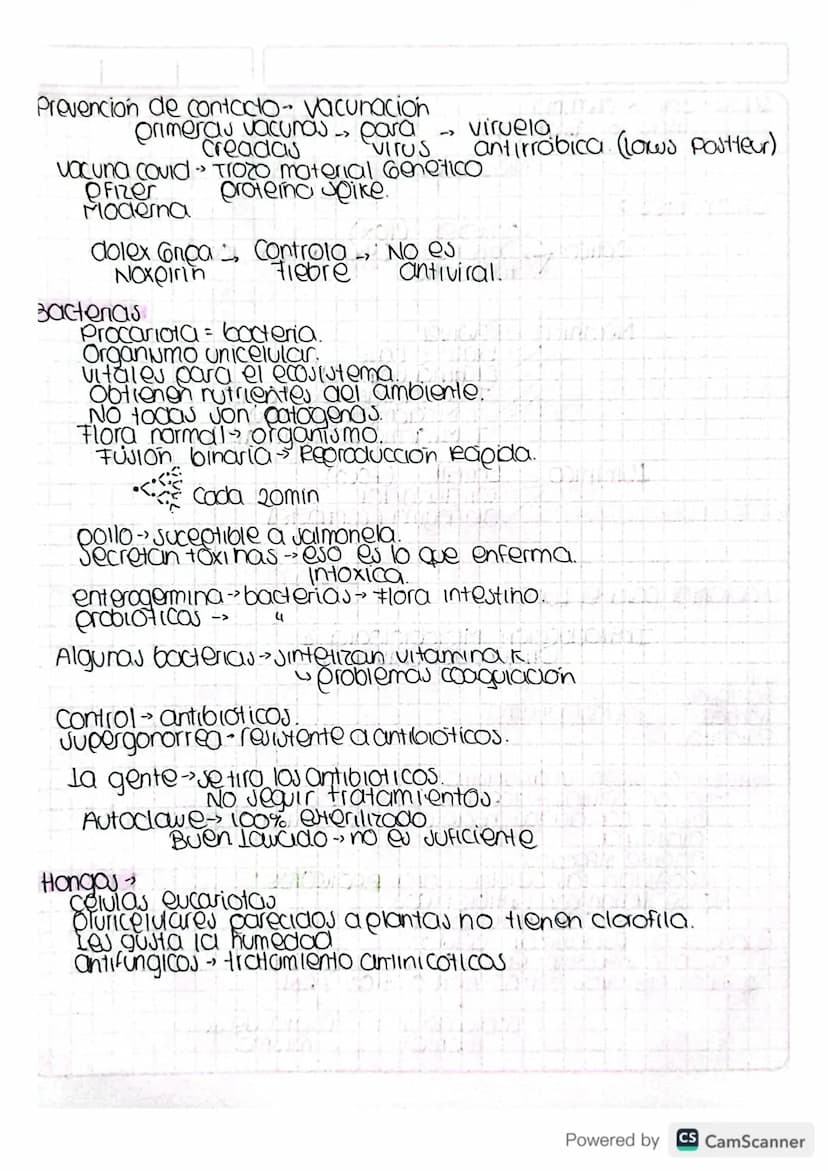 Prevención de contacto → vacunación
primeras vacunas → para → viruela
creadas virus antirrábica (Lowis Pastteur)
vacuna covid → Trozo material Genético
Pfizer proteína spike.
Moderna
dolex Gripa → Controla → No es
Noxpirin fiebre antiviral.
Bacterias
Procariota = bacteria.
Organismo unicelular.
vitales para el ecosistema.
Obtienen nutrientes del ambiente.
No todas son patogenas.
Flora normal → organismo.
Fusión binaria → Reproducción Rápida.
Cada 20min
pollo → suceptible a salmonela.
Secretan toxinas → eso es lo que enferma.
intoxica.
enterogermina → bacterias → flora intestino.
probióticos → "
Algunas bacterias → sintetizan vitamina K.
↳ problemas coagulación
Control → antibióticos.
supergonorrea → resistente a antibióticos.
La gente → se tira los antibioticos.
No seguir tratamientos.
Autoclave → 100% esterilizado
Buen lavado → no es suficiente
Hongos →
células eucariotas
pluricelulares parecidos a plantas no tienen clorofila.
Les gusta la humedad
antifungicos → tratamiento antinicoticos
Powered by CS CamScanner